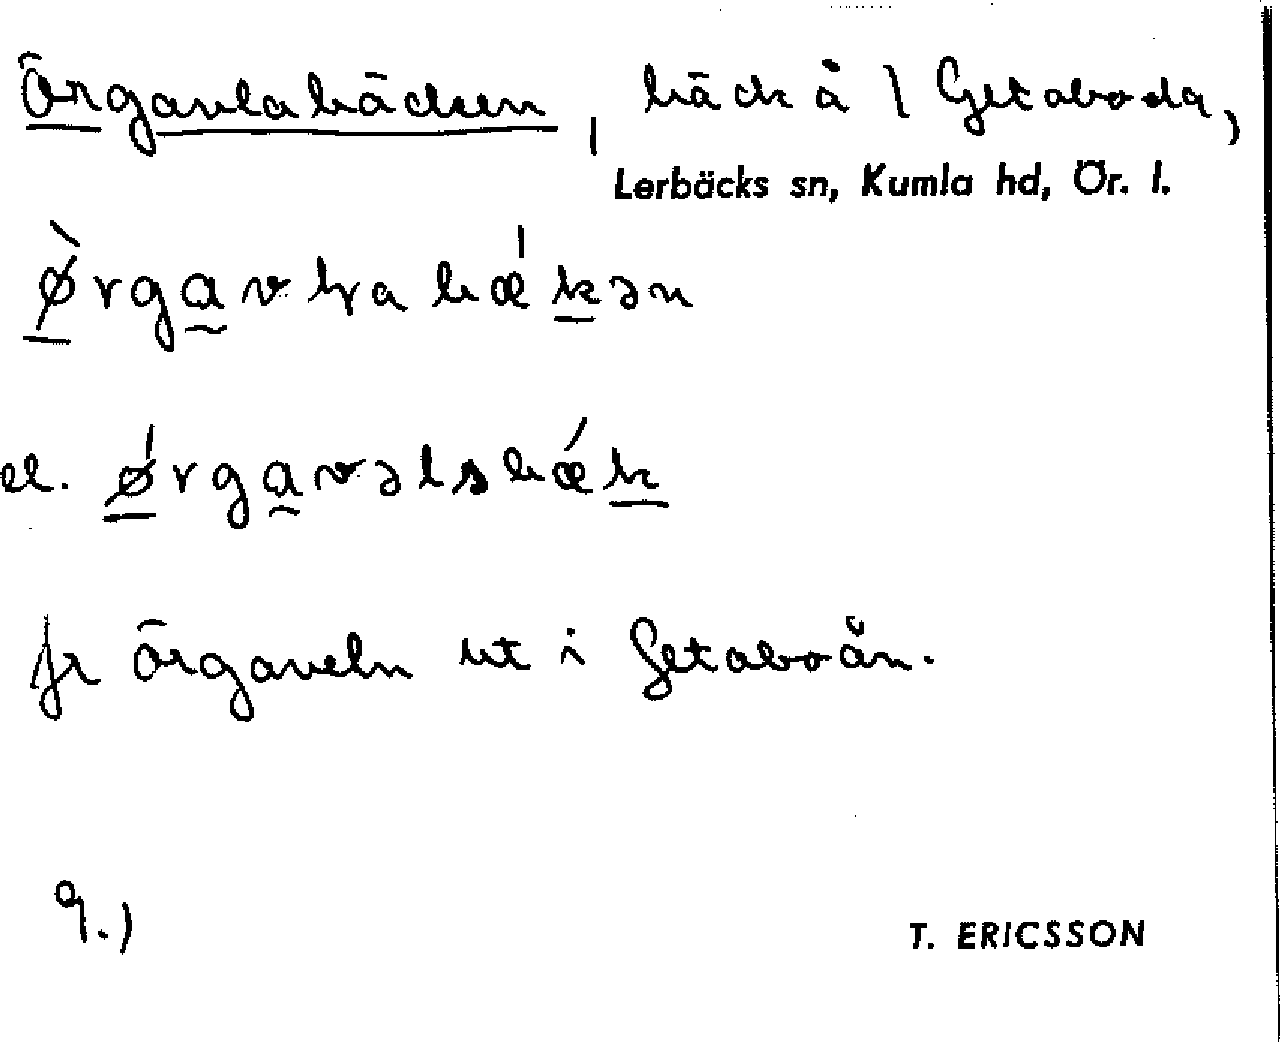 Örgavlabäcken, bäck å \ Getaboda,
Lerbäcks sn, Kumla hd, Ör. l.
el.
fr Örgaveln ut i Getaboån.
9.)
T. ERICSSON